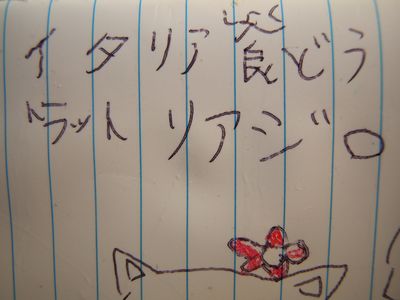 イタリア食どう
ドラット リアジ。